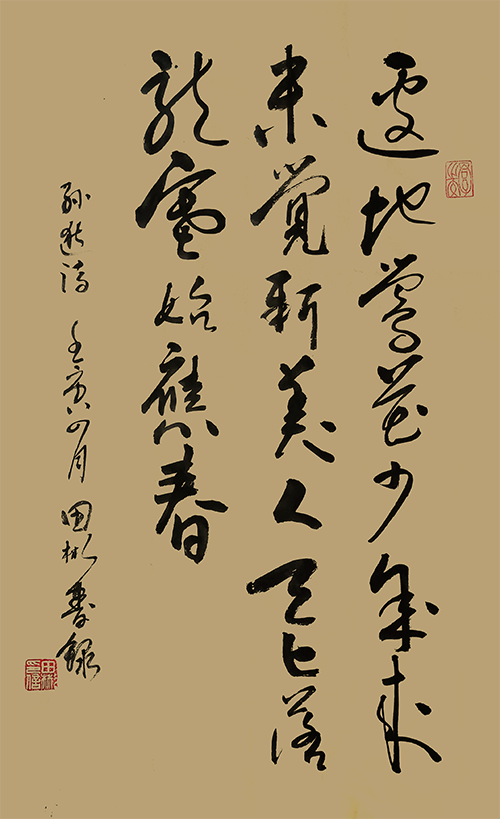 邊地鶯花少年來
未覺新美人天上落
龍塞始應春
孫逖詩 壬寅四月 田彬書錄